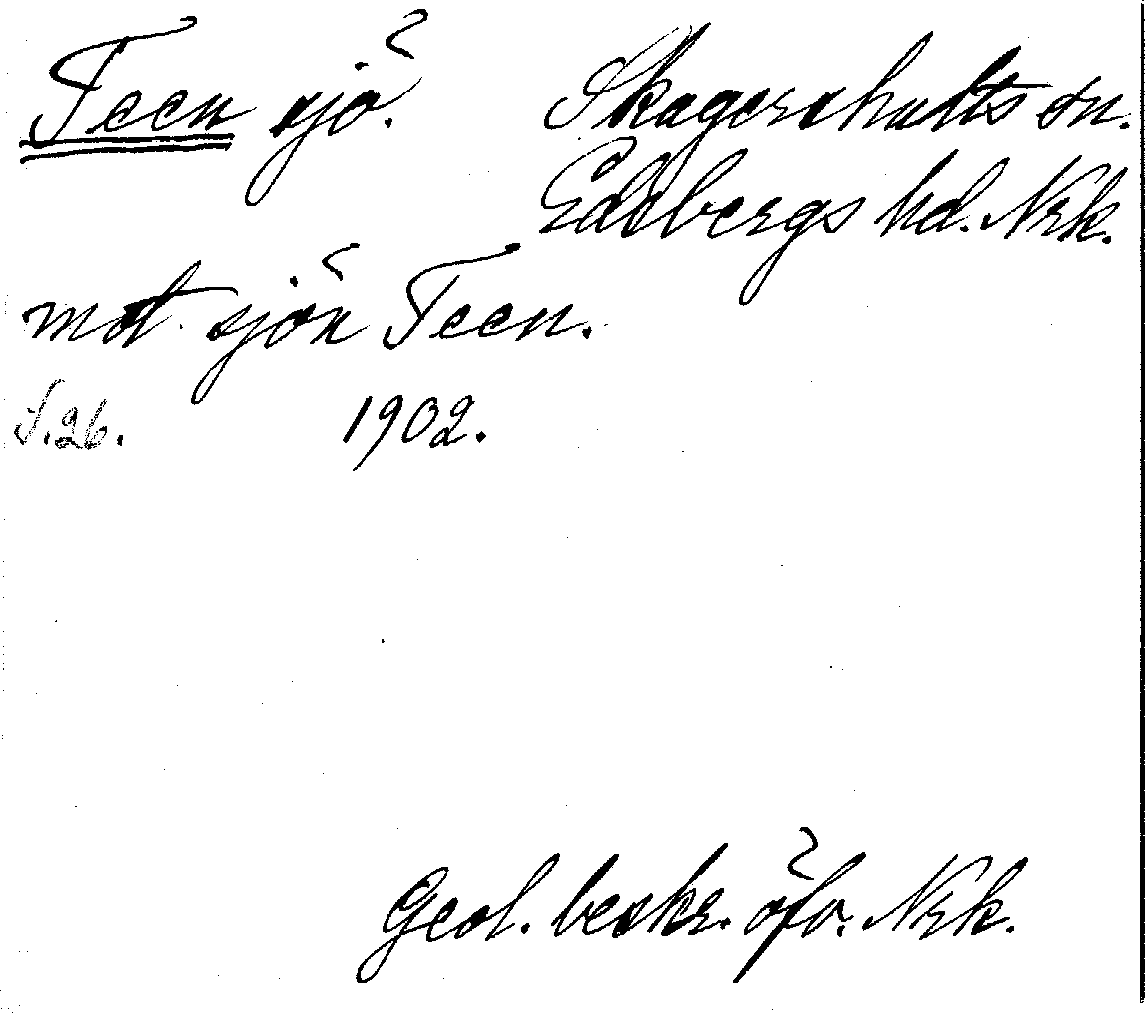 Teen sjö. Skagershults sn.
Edsbergs hd. Nrk.
mot sjön Teen.
S. 26. 1902.
Geol. beskr. öfv. Nrk.